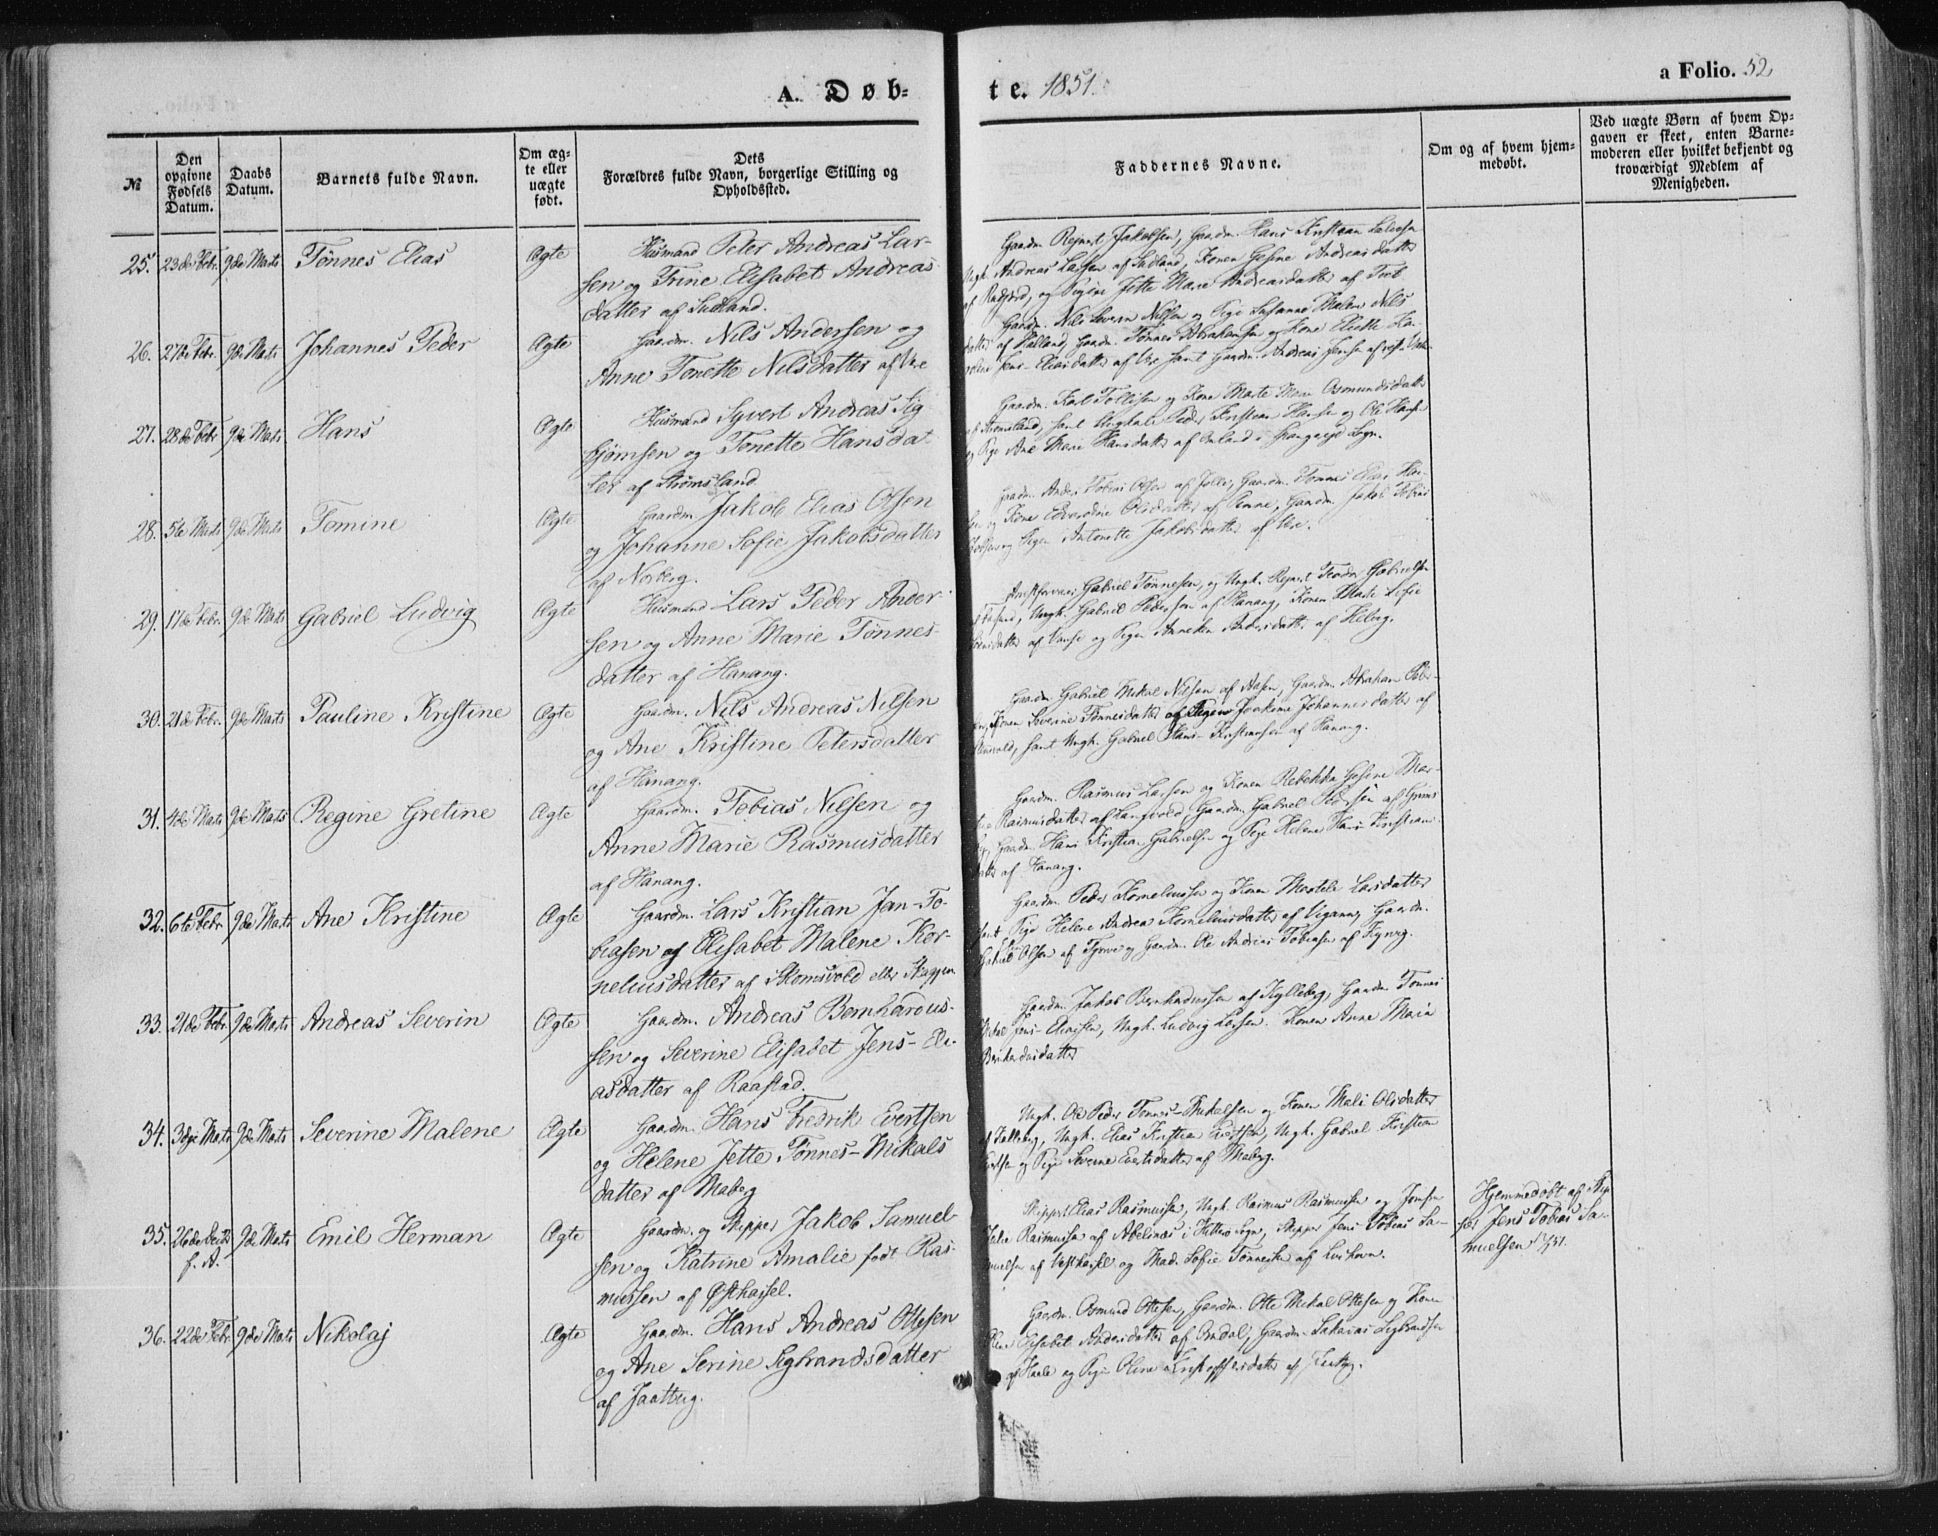 A. Døb-
te. 1851.
a Folio. 52
№
Den opgivne Fødsels Datum.
Daabs Datum.
Barnets fulde Navn.
Om ægte eller uægte født.
Dets Forældres fulde Navn, borgerlige Stilling og Opholdssted.
Faddernes Navne.
Om og af hvem hjemmedøbt.
Ved uægte Børn af hvem Opgaven er skeet, enten Barnemoderen eller hvilket bekjendt og troværdigt Medlem af Menigheden.
25. 23de Febr. 9de Marts Tønnes Elias Ægte Husmand Peter Andreas Lar-
sen og Trine Elisabet Andreas
datter af Sudland.
Gaardm. Rejnert Jakobsen, Gaardm. Hans Kristian
Ungk. Andreas Larsen af Sudland, Konen Gesine Andreasdatter
og Pigen Jette Marie Andreasdatter af
26. 27de Febr. 9de Marts Johannes Peder Ægte Gaardm. Nils Andersen og
Anne Tonette Nilsdatter af Vere
Gaardm. Nils Severin Nilsen og Pige Susanne Malene Nils
datter af Halland, Gaardm. Tønnes Abrahamsen og Kone Elisette Ka-
roline Jens-Eliasdatter af Vere, samt Gaardm. Andreas Jensen af
27. 28de Febr. 9de Marts Hans Ægte Husmand Syvert Andreas Sig-
bjørnsen og Tonette Hansdat
ter af Strømsland
Gaardm. Karl Tollisen og Kone Marte Marie Osmundsdatter
af Strømsland, samt Ungkarle Peder Kristian Hansen og Ole Hansen
og Pige Ane Marie Hansdatter af i Spangereid Sogn.
28. 5te Marts 9de Marts Tomine Ægte Gaardm. Jakob Elias Olsen
og Johanne Sofie Jakobsdatter
af Norberg.
Gaardm. Anders Tobias Olsen af Jølle, Gaardm. Tønnes Elias
og Kone Edvardine Olsdatter af Penne, Gaardm. Jakob Tobias
og Pigen Antonette Jakobsdatter af Vere.
29. 17de Febr. 9de Marts Gabriel Ludvig Ægte Husmand Lars Peder Ander
sen og Anne Marie Tønnes-
datter af Hanang.
Gabriel Tønnesen, og Ungk. Rejnert Teodor Gabrielsen
Ungk. Gabriel Pedersen af Hanang, Konen Marte Sofie
af Vanse og Pigen Anneken Andersdatter af Helvig.
30. 21de Febr. 9de Marts Pauline Kristine Ægte Gaardm. Nils Andreas Nilsen
og Ane Kristine Petersdatter
af Hanang.
Gaardm. Gabriel Mikal Nilsen af Aasen, Gaardm. Abraham Peder-
sen, Konen Severine Tønnesdatter og Pigen Joakime Johannesdatter af
samt Ungk. Gabriel Hans-Kristiansen af Hanang.
31. 4de Marts 9de Marts Regine Gretine Ægte Gaardm. Tobias Nilsen og
Anne Marie Rasmusdatter
af Hanang.
Gaardm. Rasmus Larsen og Konen Rebekka Gesine Mar-
tine Rasmusdatter af Langvold, Gaardm. Gabriel Pedersen af
Gaardm. Hans Kristian Gabrielsen og Pige Helene Hans Kristians
datter af Hanang.
32. 6te Febr. 9de Marts Ane Kristine Ægte Gaardm. Lars Kristian Jan-To-
biasen og Elisabet Malene Kor-
neliusdatter af Skomsvold eller Skeggen
Gaardm. Peder Korneliussen og Konen Martele Larsdatter
samt Pige Helene Andrea Korneliusdatter af Vigann, Gaardm.
Gabriel Olsen af Tjørve og Gaardm. Ole Andreas Tobiassen af
33. 21de Febr. 9de Marts Andreas Severin Ægte Gaardm. Andreas Bernhardus-
sen og Severine Elisabet Jens-Eli-
asdatter af Raastad.
Gaardm. Jakob Bernhardussen af Kylleberg, Gaardm. Tønnes
Mikal Jens-Eliassen, Ungk. Ludvig Larsen. Konen Anne Marie
Bernhardusdatter
34. 3dje Marts 9de Marts Severine Malene Ægte Gaardm. Hans Fredrik Evertsen
og Helene Jette Tønnes-Mikals
datter af Maberg
Ungk. Ole Peder Tønnes-Mikalsen og Konen Mali Olsdatter
Ungk. Elias Kristian Evertsen, Ungk. Gabriel Kristian
Evertsen og Pige Severine Evertsdatter af Maberg.
35. 26de Decbr f. A. 9de Marts Emil Herman Ægte Gaardm. og Skipper Jakob Samuel-
sen og Katrine Amalie født Ras-
mussen af Østhassel.
Skipper Elias Rasmussen, Ungk. Rasmus Rasmussen og Jomfru
Julie Rasmussen af Abelnæs i Hitterø Sogn, Skipper Jens Tobias Sa-
muelsen af Vesthassel og Mad. Sofie Tønnesen af
Hjemmedøbt af Skip
per Jens Tobias Sa-
muelsen
36. 22de Febr. 9de Marts Nikolaj Ægte Gaardm. Hans Andreas Ottesen
og Ane Serine Sigbrandsdatter
af Jaatberg.
Gaardm. Osmund Ottesen, Gaardm. Otte Mikal Ottesen og Kone
Elisabet Andersdatter af Ordal, Gaardm. Sakarias Sigbrandsen
af Haale og Pige Oline Kristoffersdatter af